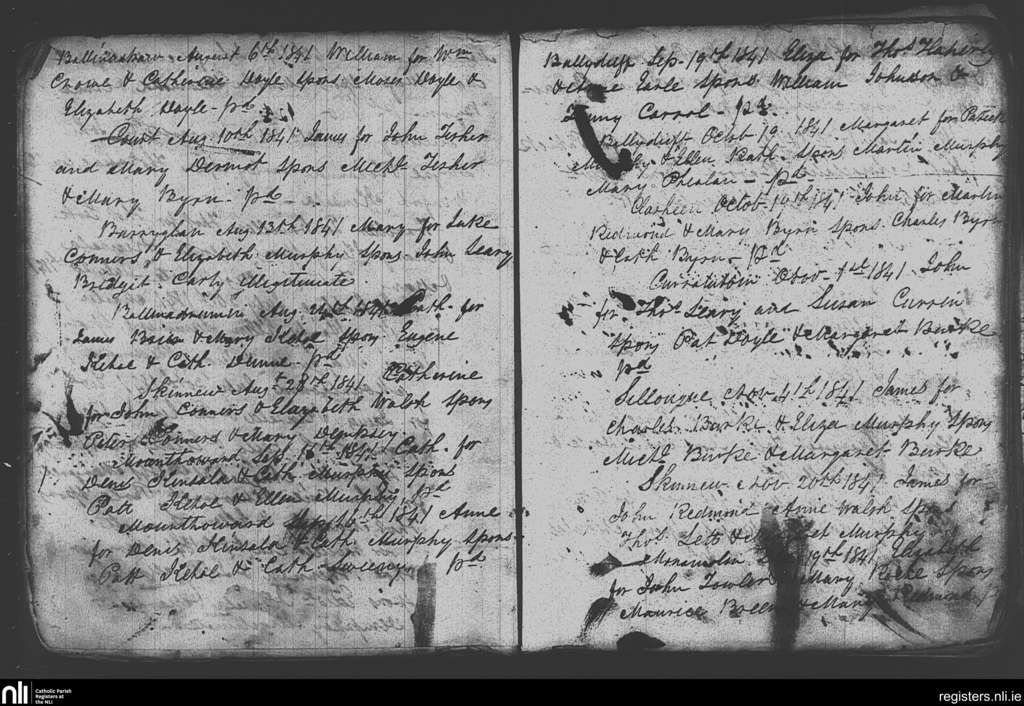 August 6th 1841 William for Wm
Crowe & Catherine Doyle spons Moses Doyle &
Elizabeth Doyle - pd
Court Aug 10th 1841 James for John Fisher
and Mary Dermot spons Michl Fisher
& Mary Byrn - pd
Aug 13th 1841 Mary for Luke
Conners & Elizabeth Murphy spons John Leary
Bridgit Carty Illigitimate
Aug 24th 1841 Cath. for
James & Mary Kehoe spons Eugene
Kehoe & Cath. pd
Skinnew Aug 28th 1841 Catherine
for John Conners & Elazabeth Walsh spons
Peter Conners & Mary Dempsey
Mounthoward Sep. 1841 Cath. for
Denis Kinsala & Cath Murphy spons
Patt Kehoe & Ellen Murphy pd
Mounthoward Sep 16th 1841 Anne
for Denis Kinsala & Cath Murphy spons
Patt Kehoe & Cath Sweeney pd
Ballyduff Sep. 19th 1841 Eliza for Thos Flaherty
& Anne Earle spons William Johnson &
Carrol - pd
Ballyduff Octob 19 1841 Margaret for Patrick
& Ellen Rath spons Martin Murphy
Mary Phealan - pd
Clasheen Octob 19th 1841 John for Martin
Redmond & Mary Byrn spons Charles Byrn
& Cath Byrn - pd
Nov. 1st 1841 John
for Thos Leary and Susan Curren
spons Pat Doyle & Margaret Burke
pd
Nov 4th 1841 James for
Charles Burke & Eliza Murphy spons
Michl Burke & Margaret Burke
Skinnew Nov 20th 1841 James for
John Redmond Anne Walsh spons
Thos Lett & Murphy
19th 1841 Elizabeth
for John Fowler & Mary Roche spons
Maurice Breen & Mary Redmond
nli
Catholic Parish
Registers at
the NLI
registers.nli.ie